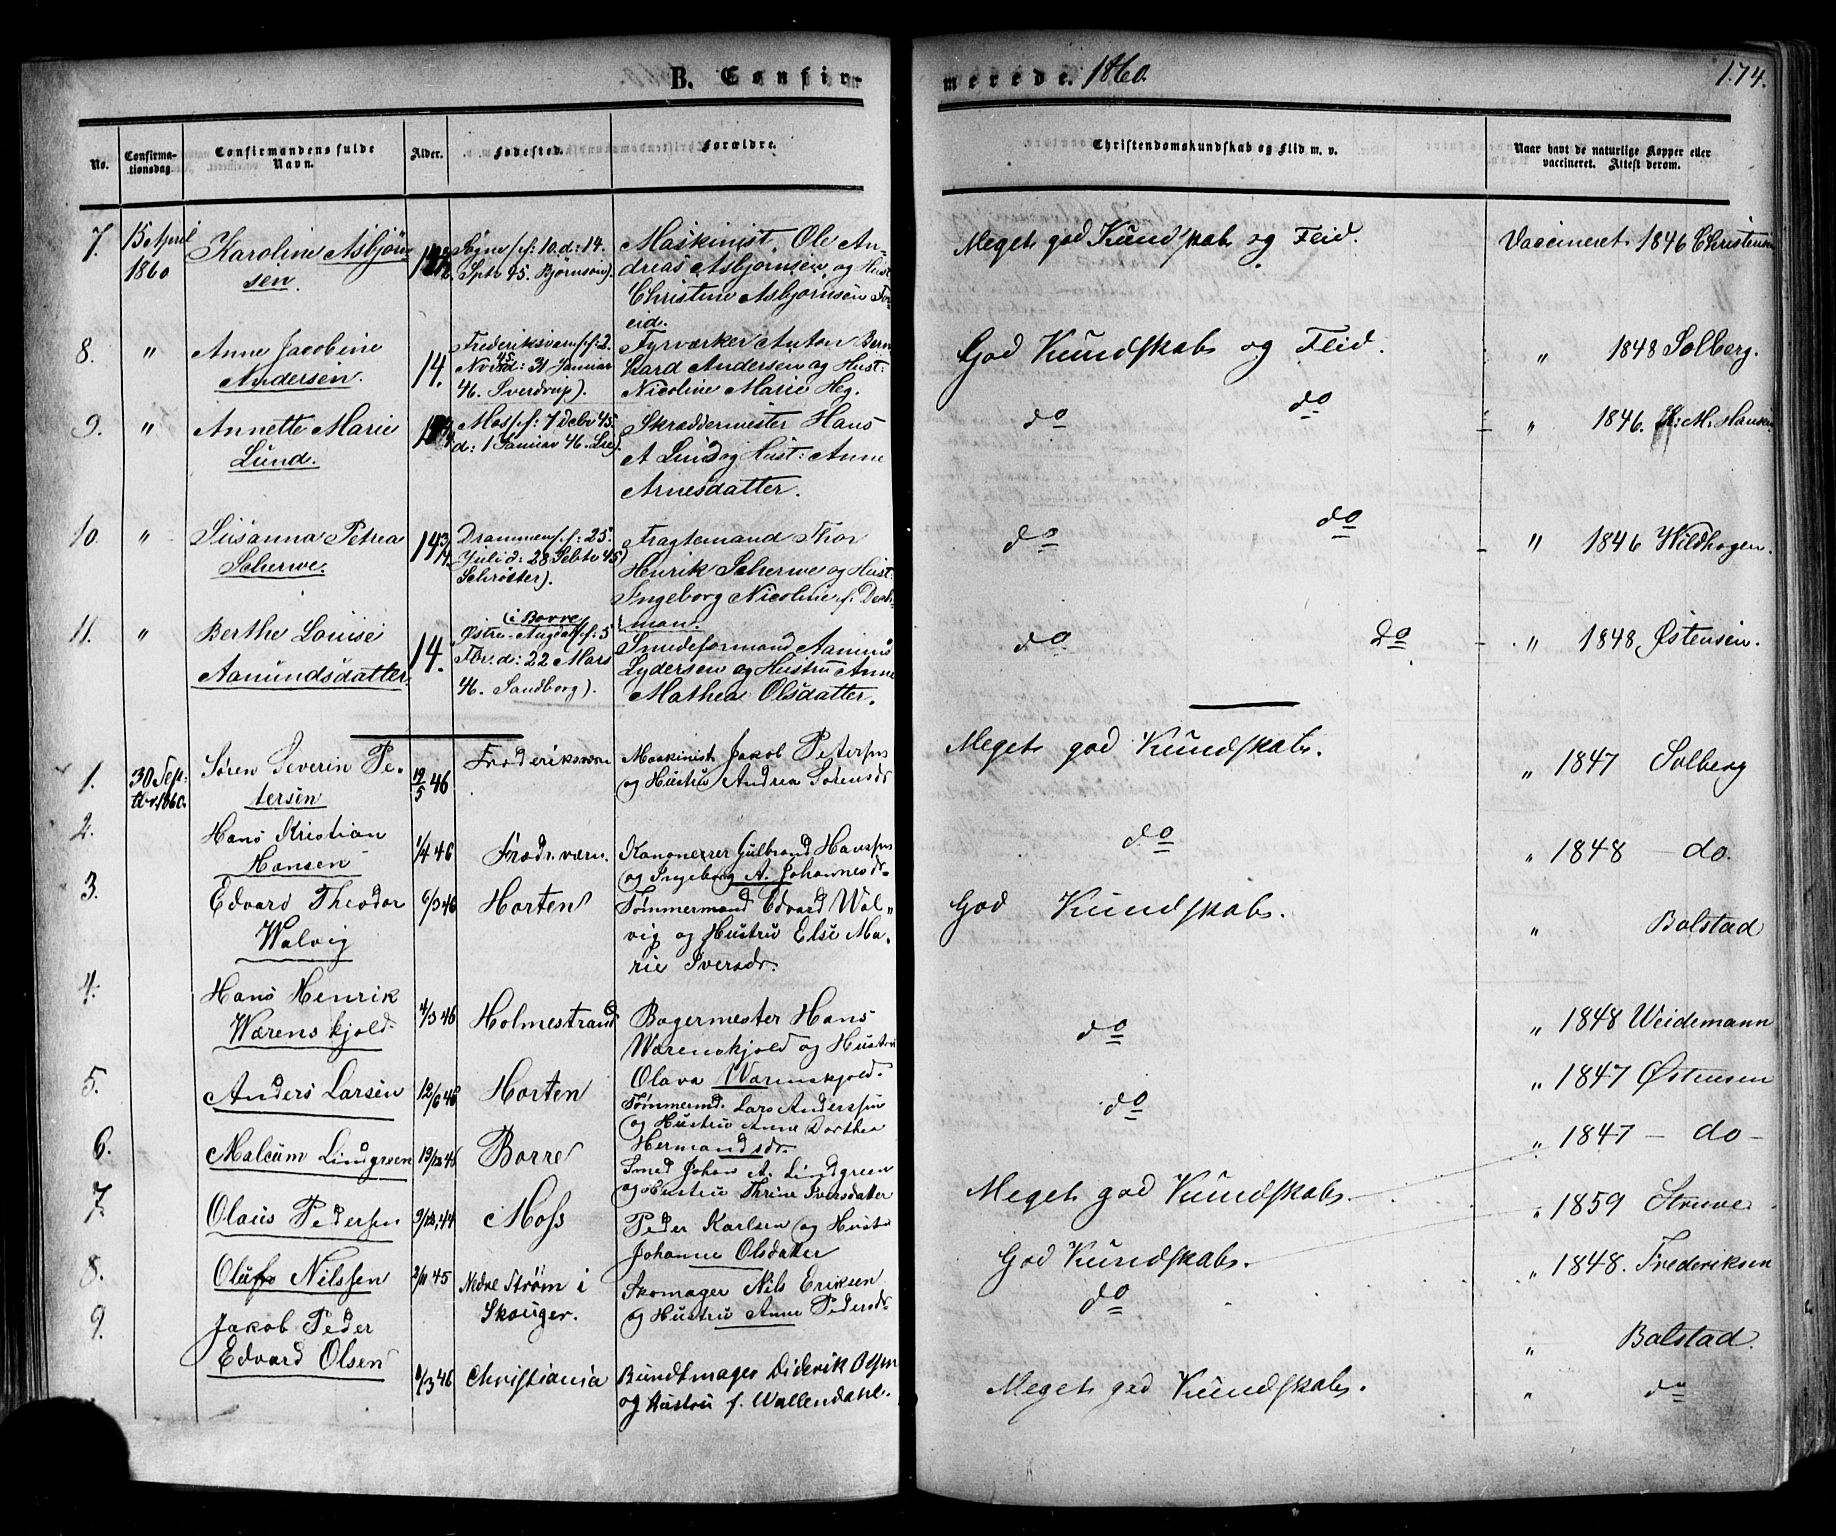 B. Confir-
merede. 1860.
174.
No.
Confirma-
tionsdag.
Confirmandens fulde
Navn.
Alder.
Fødested.
Forældre.
Christendomskundskab og Flid m. v.
Naar havt de naturlige Kopper eller
vaccineret. Attest derom.
7. 15 April
1860
Karoline Asbjørn
sen.
Sogne(f: 10. d: 14.
Sptb 45. Bjørnson).
Maskinist, Ole An-
dreas Asbjørnsen, og Hust
Christine Asbjørnsen
Meget god Kundskab og Flid.
Vaccineret 1846 Christensen
8. "
Anne Jacobine
Andersen.
14.
Frederiksværn(f: 2.
Nov 45 d: 31 Januar
46. Sverdrup).
Fyrværker Anton Bern
hard Andersen og Hust:
Nicoline Marie Heg.
God Kundskab og Flid.
" 1848 Solberg.
9. "
Annette Marie
Lund.
Moss(f: 7 Debr 45.
d: 1 Januar 46.
Skræddermester Hans
A Lund og Hust: Anne
Arnesdatter.
do do
" 1846. H: M: Hansen
10. "
Susanna Petrea
Scherwe.
14 3/4
Drammen(f: 25
Juli d: 28 Sebtbr 45)
Schrøster).
Fragtemand Thor
Henrik Scherwe og Hust:
Ingeborg Nicoline f: Dedi-
man.
do do
" 1846 Hildhogen.
11. "
Berthe Louise
Aamundsdatter.
14.
(i Borre
Østre-Augdal(f: 5
Fbr. d: 22 Mars
46. Sandberg).
Smedeformand Aamund
Lydersen og Hustru Anne
Mathea Olsdatter.
do Do
" 1848 Østensen.
1. 30 Sep-
tbr. 1860.
Søren Severin Pe-
tersen
19/5 46
Frederiksværn
Maskinist Jakob Petersen
og Hustru Andrea Sørensdr
Meget god Kundskab.
" 1847 Solberg
2.
Hans Kristian
Hansen
1/4 46
Fredr.værn.
Kanonerer Gulbrand Hanssen
og Ingeborg A. Johannesdr
do
" 1848 - do.
3.
Edvard Theodor
Walvig
6/3 46
Horten
Tømmermand Edvard Wal-
vig og Hustru Else Ma-
rie Iversdr.
God Kundskab.
" Balstad
4.
Hans Henrik
Wærenskjold.
4/3 46
Holmestrand
Bagermester Hans
Wærenskjold og Hustru
Olava Wærenskjold.
do
" 1848 Weidemann
5.
Anders Larsen
12/6 46
Horten
Tømmermd. Lars Anderssen
og Hustru Anne Dorthea
Hermandsdr.
do
" 1847 Østensen
6.
Malcum Lindgreen
19/12 46
Borre
Smed Johan A. Lindgreen
og Hustru Thrine Iversdatter
Meget god Kundskab.
" 1847 - do -
7.
Olaus Pedersen
9/12 44
Moss
Peder Karlsen og Hustr
Johanne Olsdatter
God Kundskab.
" 1859 Struve
8.
Oluf Nilssen
2/11 45
Nedre Strøm i
Skouger.
Skomager Nils Eriksen
og Hustru Anne Pedersdr
do
" 1848. Frederiksen
9.
Jakob Peder
Edvard Olsen
6/3 46
Christiania
Bundtmager Diderik Olsen
og Hustru f. Wallendahl.
Meget god Kundskab.
" Balstad.
" do